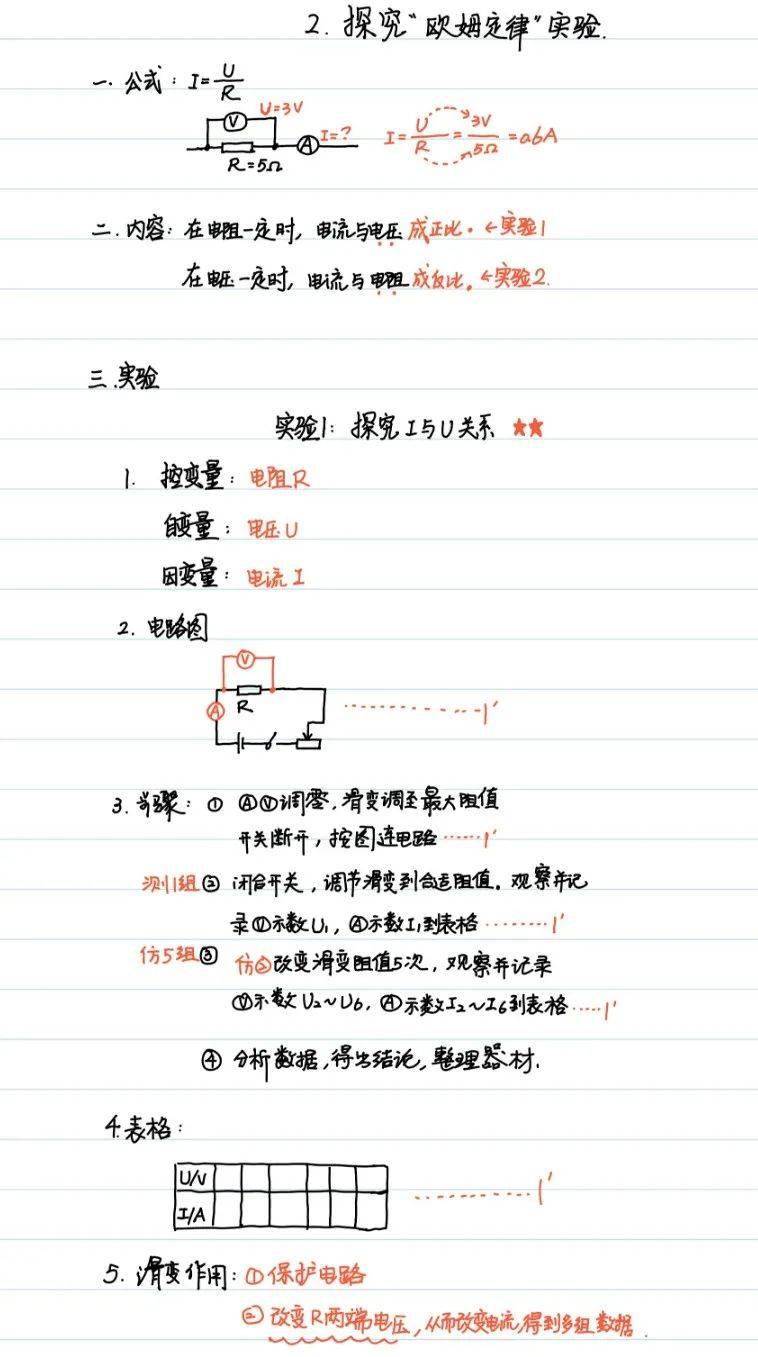 2. 探究“欧姆定律”实验.
一. 公式: I=U/R
U=3V
V A I=? I=U/R=3V/5Ω=0.6A
R=5Ω
二. 内容: 在电阻一定时, 电流与电压成正比. ←实验1
在电压一定时, 电流与电阻成反比. ←实验2.
三. 实验
实验1: 探究I与U关系 ★★
1. 控变量: 电阻R
自变量: 电压U
因变量: 电流I
2. 电路图
V
A R ……1'
3. 步骤: ① ⒶⓋ调零, 滑变调至最大阻值
开关断开, 按图连电路……1'
测1组② 闭合开关, 调节滑变到合适阻值. 观察并记
录Ⓥ示数U₁, Ⓐ示数I₁到表格……1'
仿5组③ 仿②改变滑变阻值5次, 观察并记录
Ⓥ示数U₂~U₆, Ⓐ示数I₂~I₆到表格……1'
④ 分析数据, 得出结论, 整理器材.
4. 表格:
U/V
I/A ……1'
5. 滑变作用: ①保护电路
② 改变R两端电压, 从而改变电流, 得到多组数据.